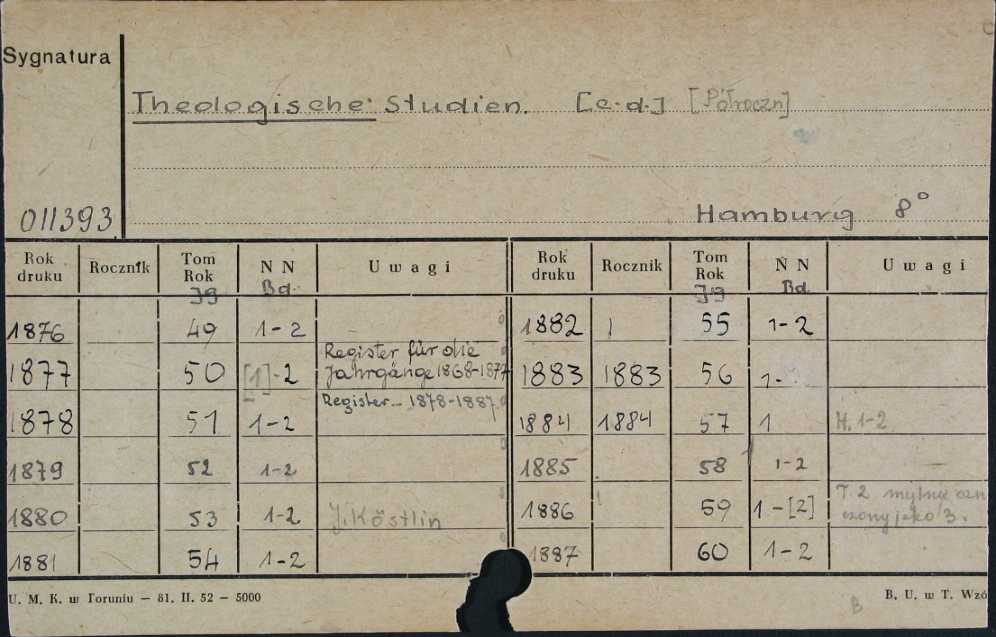 Sygnatura
Theologische Studien. [c.d.] [Półroczn]
011393
Hamburg 8°
Rok druku Rocznik Tom Rok Jg NN Bd. Uwagi Rok druku Rocznik Tom Rok Jg NN Bd Uwagi
1876 49 1-2 1882 55 1-2
1877 50 [1]-2 Register für die Jahrgänge 1868-1877 1883 1883 56 1-
1878 51 1-2 Register 1878-1887 1884 1884 57 1 H. 1-2
1879 52 1-2 1885 58 1-2
1880 53 1-2 J. Köstlin 1886 59 1-[2] T. 2 mylnie ozn czony jako 3.
1881 54 1-2 1887 60 1-2
U. M. K. w Toruniu — 81. II. 52 — 5000 B B. U. w T. Wzó